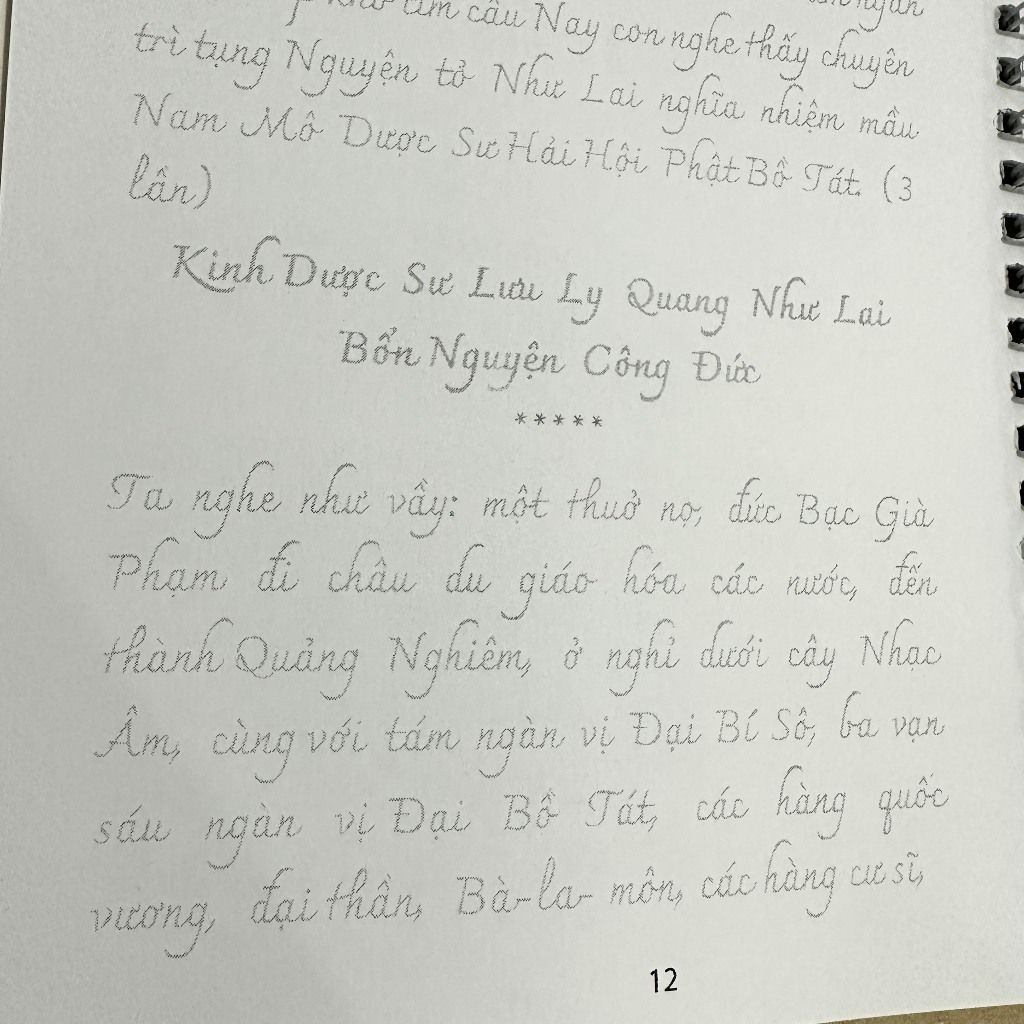 khó tìm cầu Nay con nghe thấy chuyên
trì tụng Nguyện tỏ Như Lai nghĩa nhiệm mầu
Nam Mô Dược Sư Hải Hội Phật Bồ Tát. (3
lần)
Kinh Dược Sư Lưu Ly Quang Như Lai
Bổn Nguyện Công Đức
*****
Ta nghe như vầy: một thuở nọ, đức Bạc Già
Phạm đi châu du giáo hóa các nước, đến
thành Quảng Nghiêm, ở nghỉ dưới cây Nhạc
Âm, cùng với tám ngàn vị Đại Bí Sô, ba vạn
sáu ngàn vị Đại Bồ Tát, các hàng quốc
vương, đại thần, Bà-la-môn, các hàng cư sĩ,
12